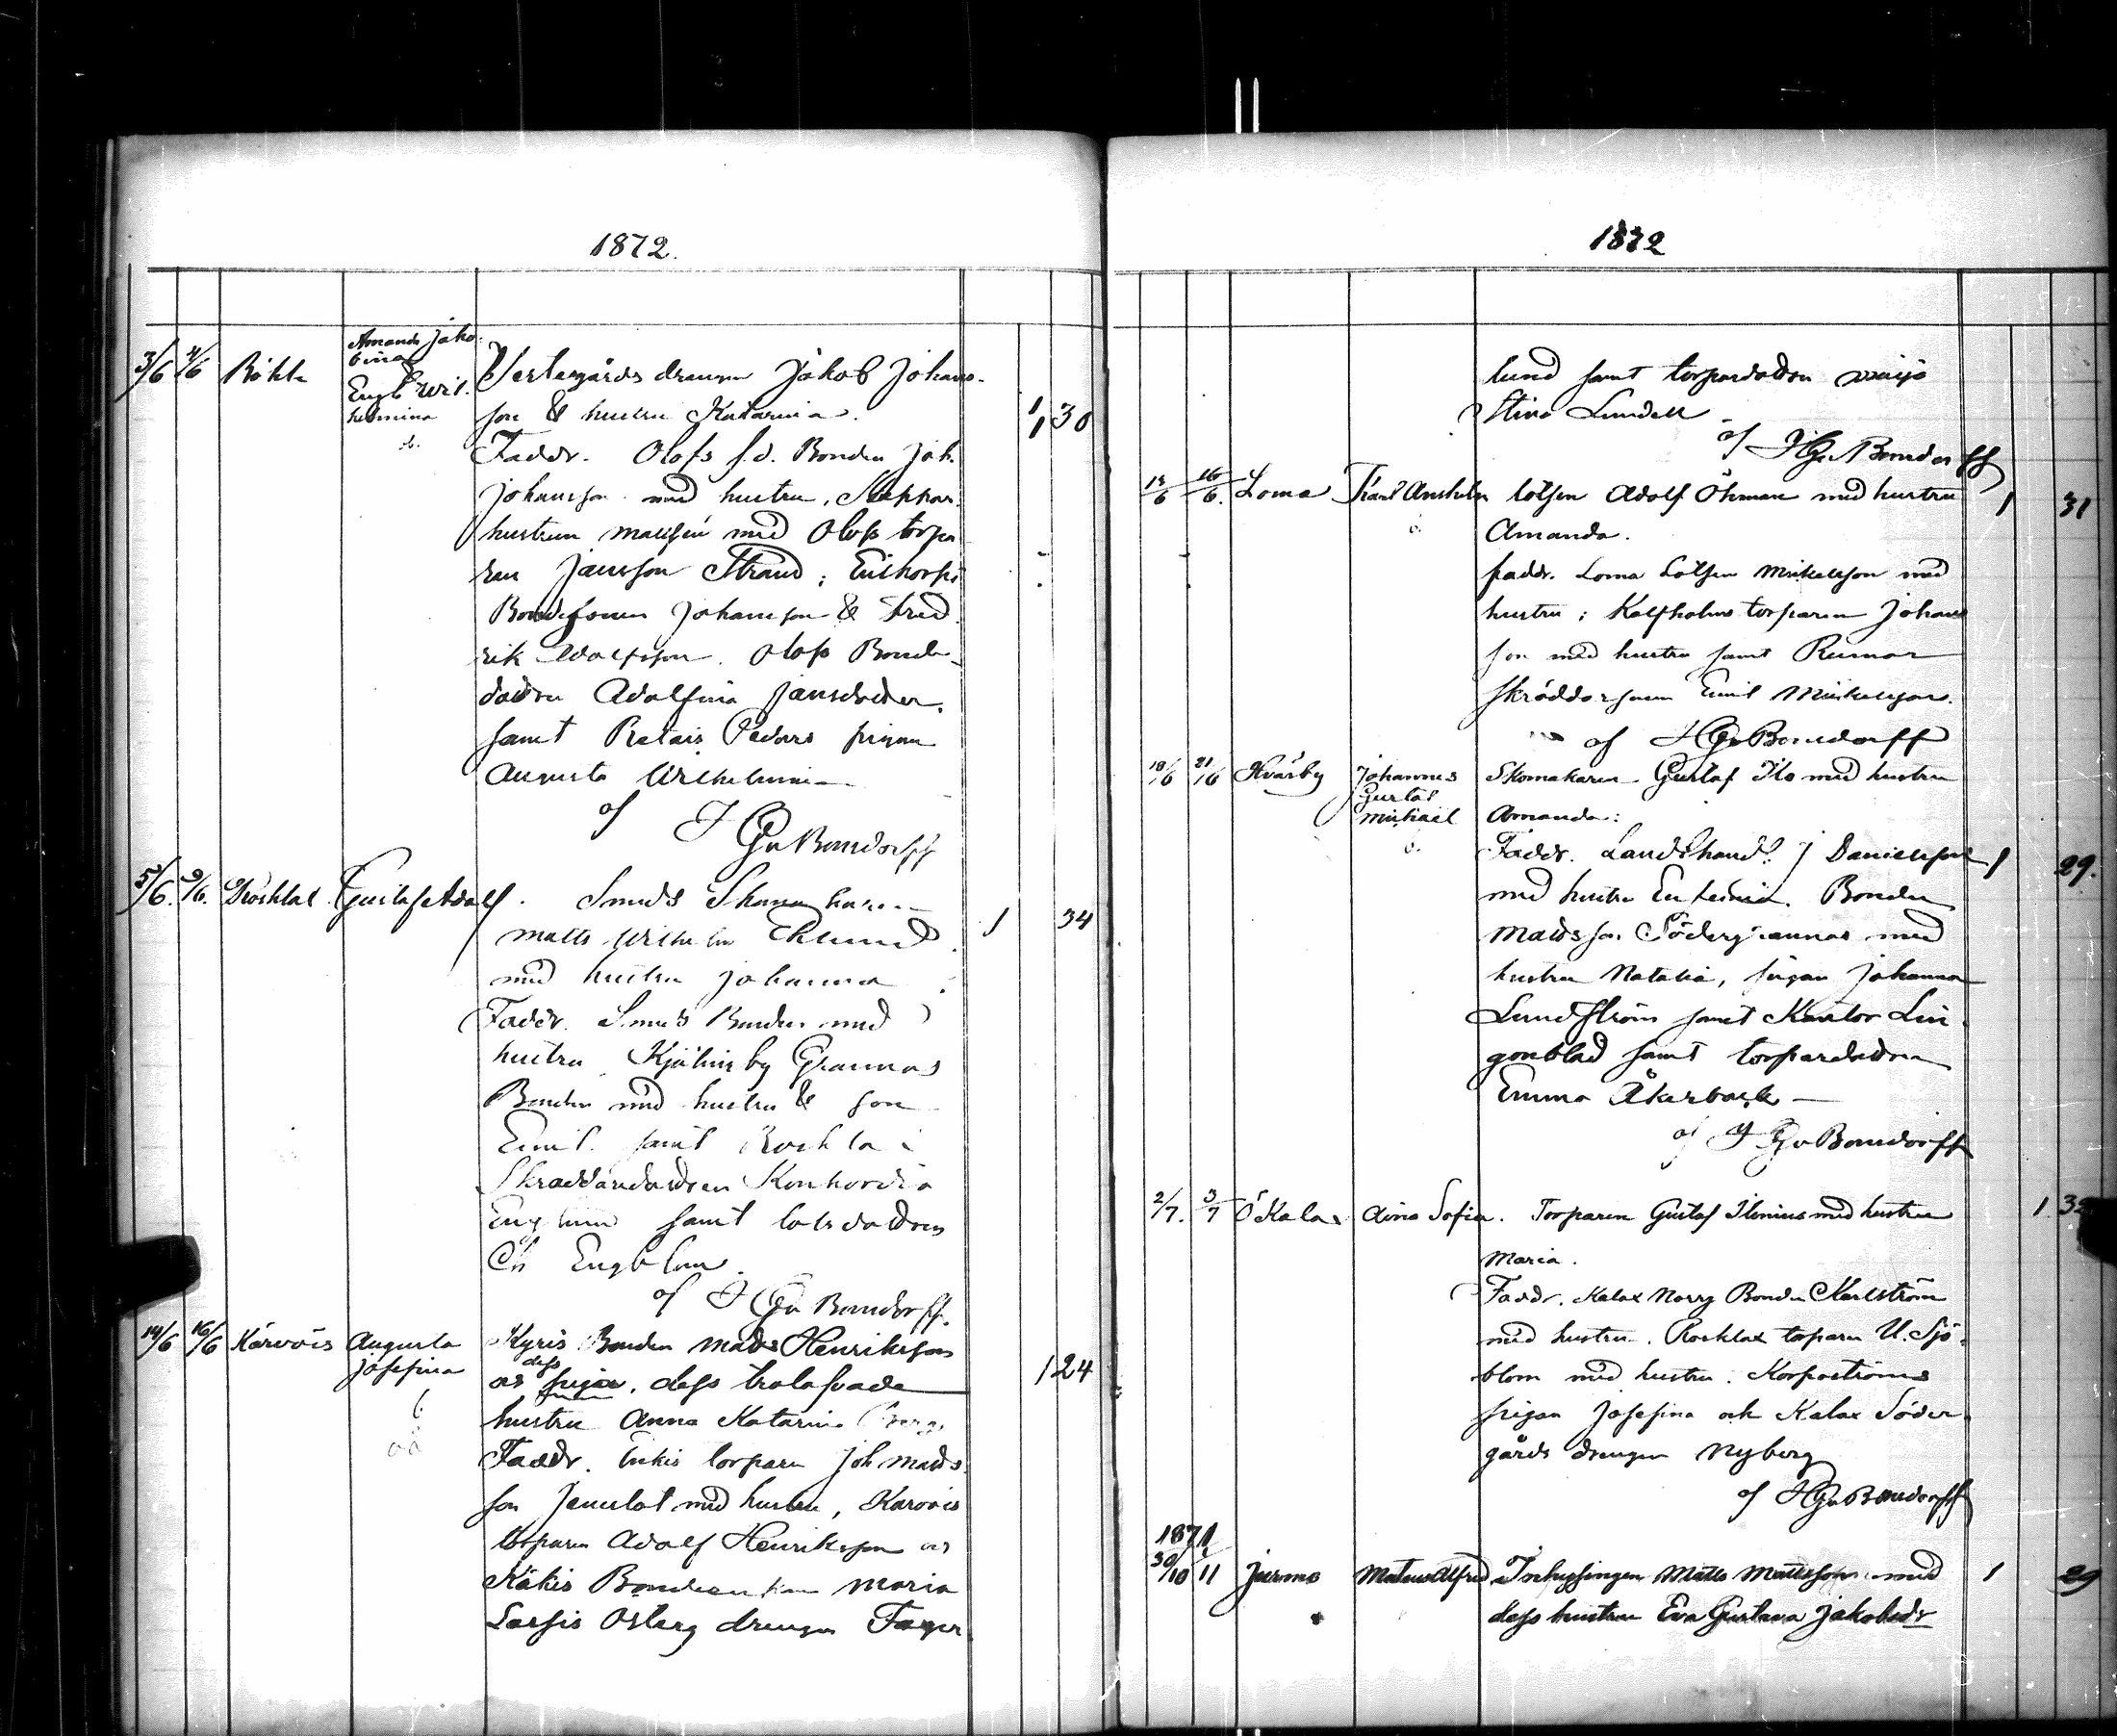 1872.
3/6 4/6 Amanda Jako-
bina
Engl Wil-
helmina
Westergårds drengen Jakob Johans-
son & hustru Katarina. 1 30
Faddr. Olofs f.d. Bonden Joh.
Johansson med hustru,
hustrun med Olofs torpa
ren Jansson Strand;
Bondesonen Johansson & Fred
rik Adolfsson. Olofs Bonde-
dottren Adolfina Jansdotter,
samt Retais Pedars pigan
Augusta Wilhelmina
af
v Bonsdorff
5/6. 9/6. Rosklax Gustaf Adolf. Smeds Skomakaren
Matts Wilhelm Eklund 1 34
med hustru Johanna
Faddr. Smeds Bonden med
hustru, Grannas
Bonden med hustru & son
Emil. samt
Skraddaredottren Konkordia
Englund samt lotsdottren
Ch Engblom.
af v Bonsdorff.
14/6 16/6 Kärvois Augusta
Josefina
Kyris Bonden Mads Henriksson
dess
piga, dess trolofvade 1 24
hustru Anna Katarina
Faddr. torparn Joh Mads-
son med hustru, Karvois
torparn Adolf Henriksson
Maria
drengen Fager
1872
lund samt torpardottren Maja
Stina Lundell
af v Bonsdorff
13/6 16/6. Loma Karl Anshelm lotsen Adolf Öhman med hustru 1 31
Amanda.
Faddr. Loma Lotsen Mickelsson med
hustru; Kalfholms torparen Johans
son med hustru samt Rumar
skräddarsonen Emil Mickelsson.
af v Bonsdorff
18/6 21/6 Kvarby Johannes
Gustaf
Mikael
Skomakaren Gustaf Ilo med hustru
Amanda:
Faddr. Landthandl. J Danielsson 1 29.
med hustru Eufemia. Bonden
Madsson Södergrannas med
hustru Natalia, pigan Johanna
Lundström samt Kantor Lin
gonblad samt torparedottren
Emma Åkerback
af v Bonsdorff
2/7. 3/7 Ö Kalax Aina Sofia. Torparen Gustaf med hustru 1
Maria.
Faddr. Kalax Norrg Bonden Karlström
med hustru. Rosklax torparn U. Sjö-
blom med hustru. Korpoströms
pigan Josefina och Kalax Söder
gårds drengen Nyberg
af v Bonsdorff
1871
30/10 11 Jurmo Mateus Alfred Inhysingen Matts Mattsson med 1 29
dess hustru Eva Gustava Jakobsdr